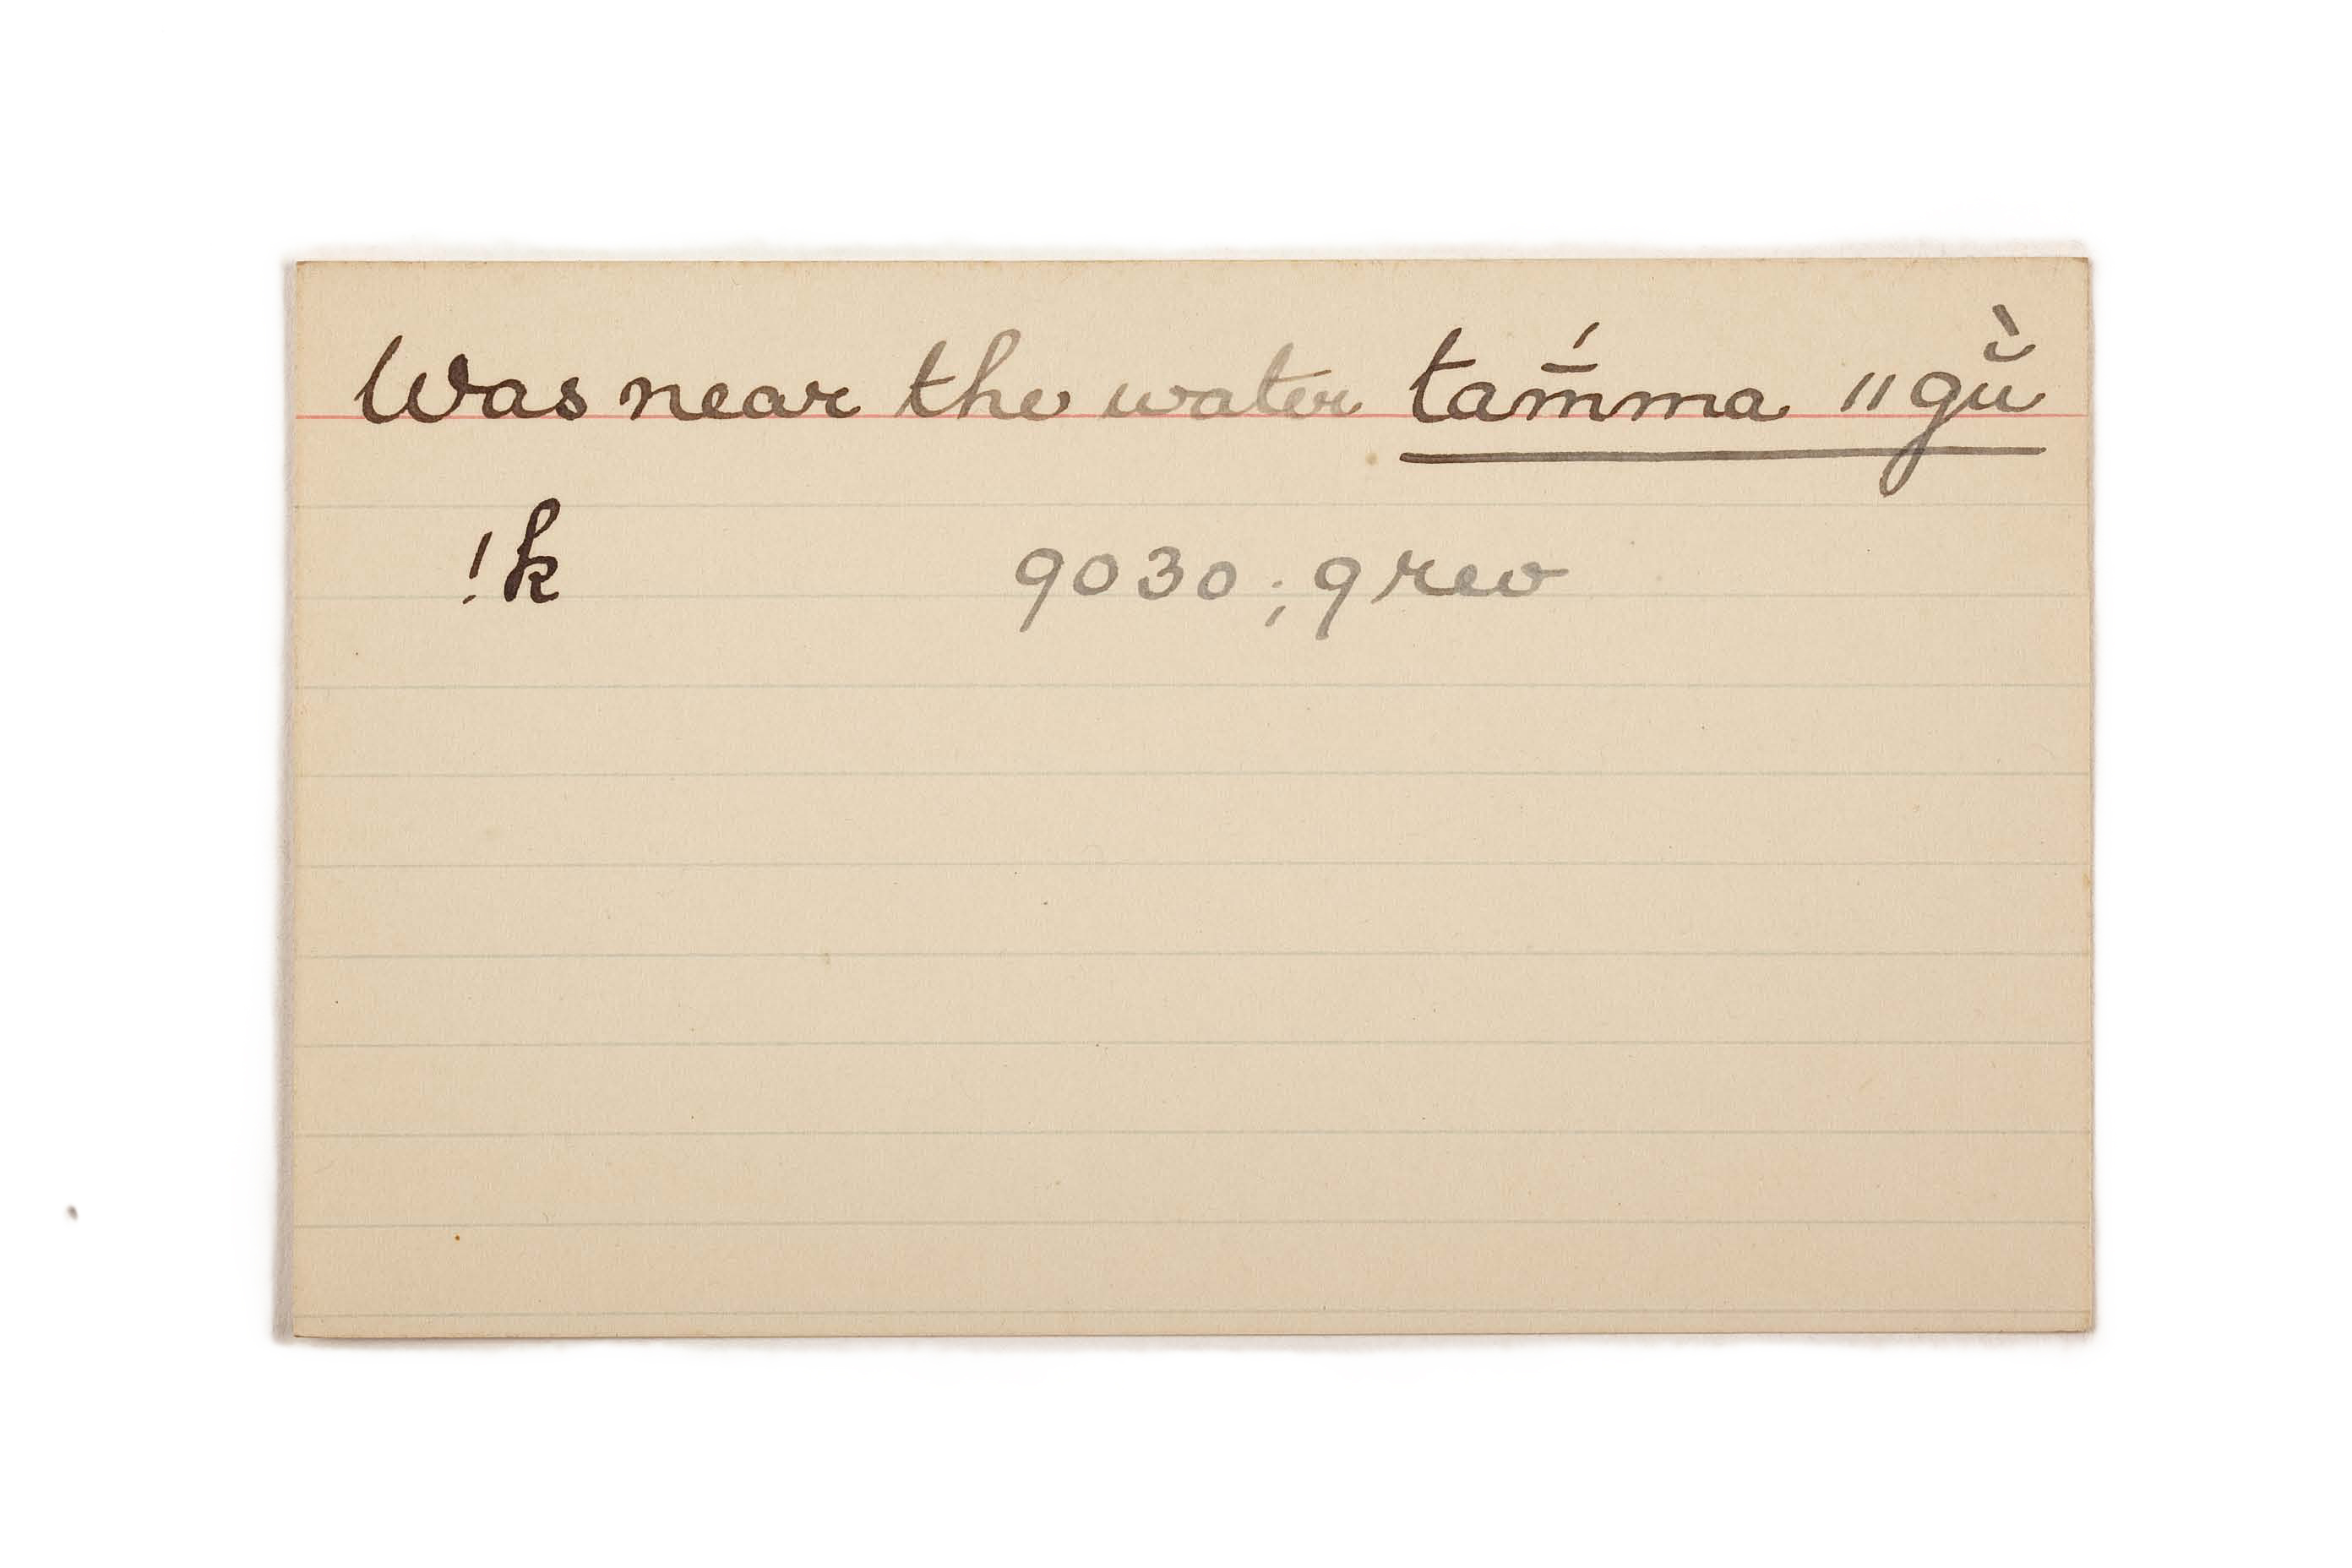 Was near the water tam̄́ma ǁgŭ̀
!k 9030; 9 rev